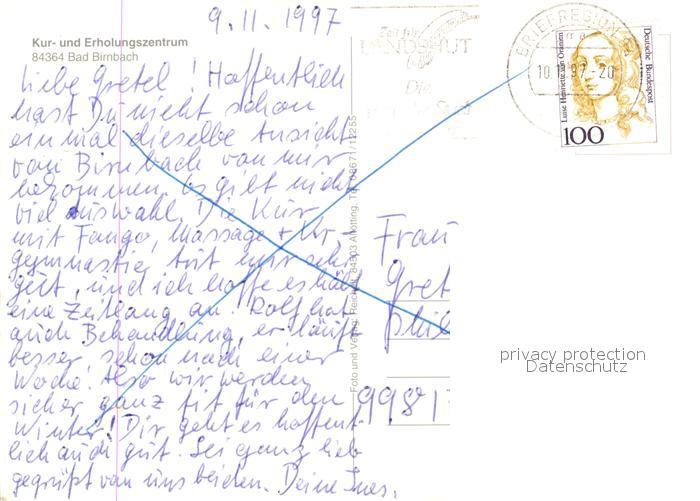 9.11.1997
Kur- und Erholungszentrum
84364 Bad Birnbach
Liebe Gretel! Hoffentlich
hast Du nicht schon
einmal dieselbe Ansicht
von Birnbach von mir
bekommen, es gibt nicht
viel Auswahl. Die Kur
mit Fango, Massage + Kr.-
gymnastik tut mir sehr
gut, und ich hoffe es hält
eine Zeitlang an. Rolf hat
auch Behandlung, er läuft
besser schon nach einer
Woche! Also wir werden
sicher ganz fit für den
Winter! Dir geht es hoffent-
lich auch gut. Sei ganz lieb
gegrüßt von uns beiden. Deine Ines.
Foto und Verlag: 84503 Altötting, Tel. 08671/12255
Zeit für
LANDSHUT
Die
BRIEFREGION
10.11.97-20
Luise Henriette von Oranien
Deutsche Bundespost
100
Frau
Gret
Phil
9981
privacy protection
Datenschutz